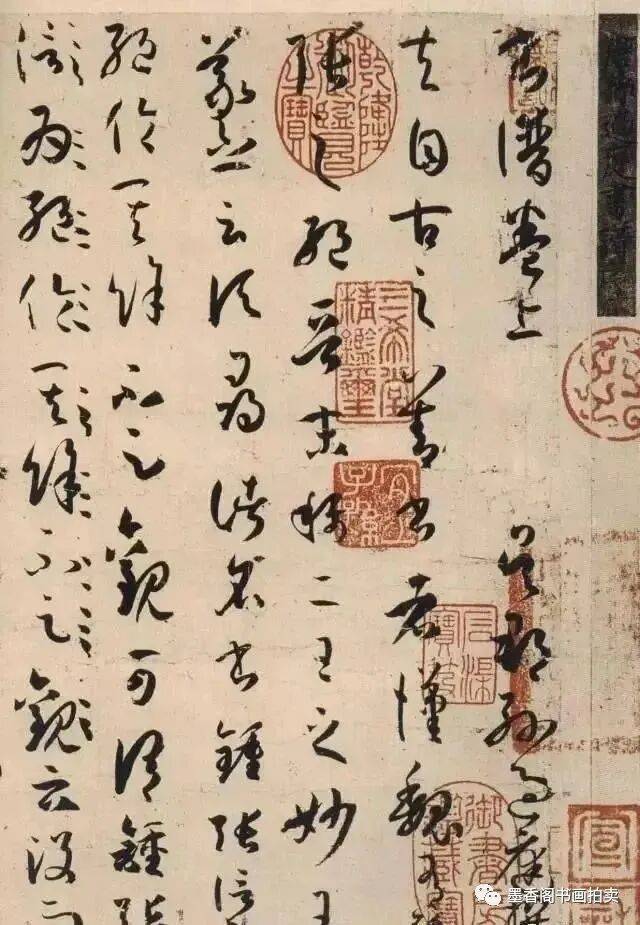 書譜卷上 吳郡孫過庭撰
夫自古之善書者漢魏有
張之絕晉末稱二王之妙王
羲之云頃尋諸名書鍾張信
絕倫其餘不足觀可謂鍾張
為絕倫其餘不足觀云沒而
乾隆御覽之寶
三希堂精鑑璽
宜子孫
石渠寶笈
墨香阁书画拍卖